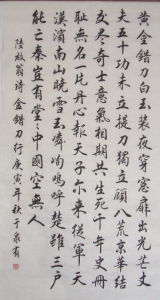 黄金錯刀白玉装夜穿窗扉出光芒丈
夫五十功未立提刀獨立顧八荒京華結
交盡奇士意氣相期共生死千年史冊
恥無名一片丹心報天子尔来從軍天
漢濱南山曉雪玉嶙峋嗚呼楚雖三户
能亡秦豈有堂々中國空無人
陸放翁詩金錯刀行庚寅年秋于泉